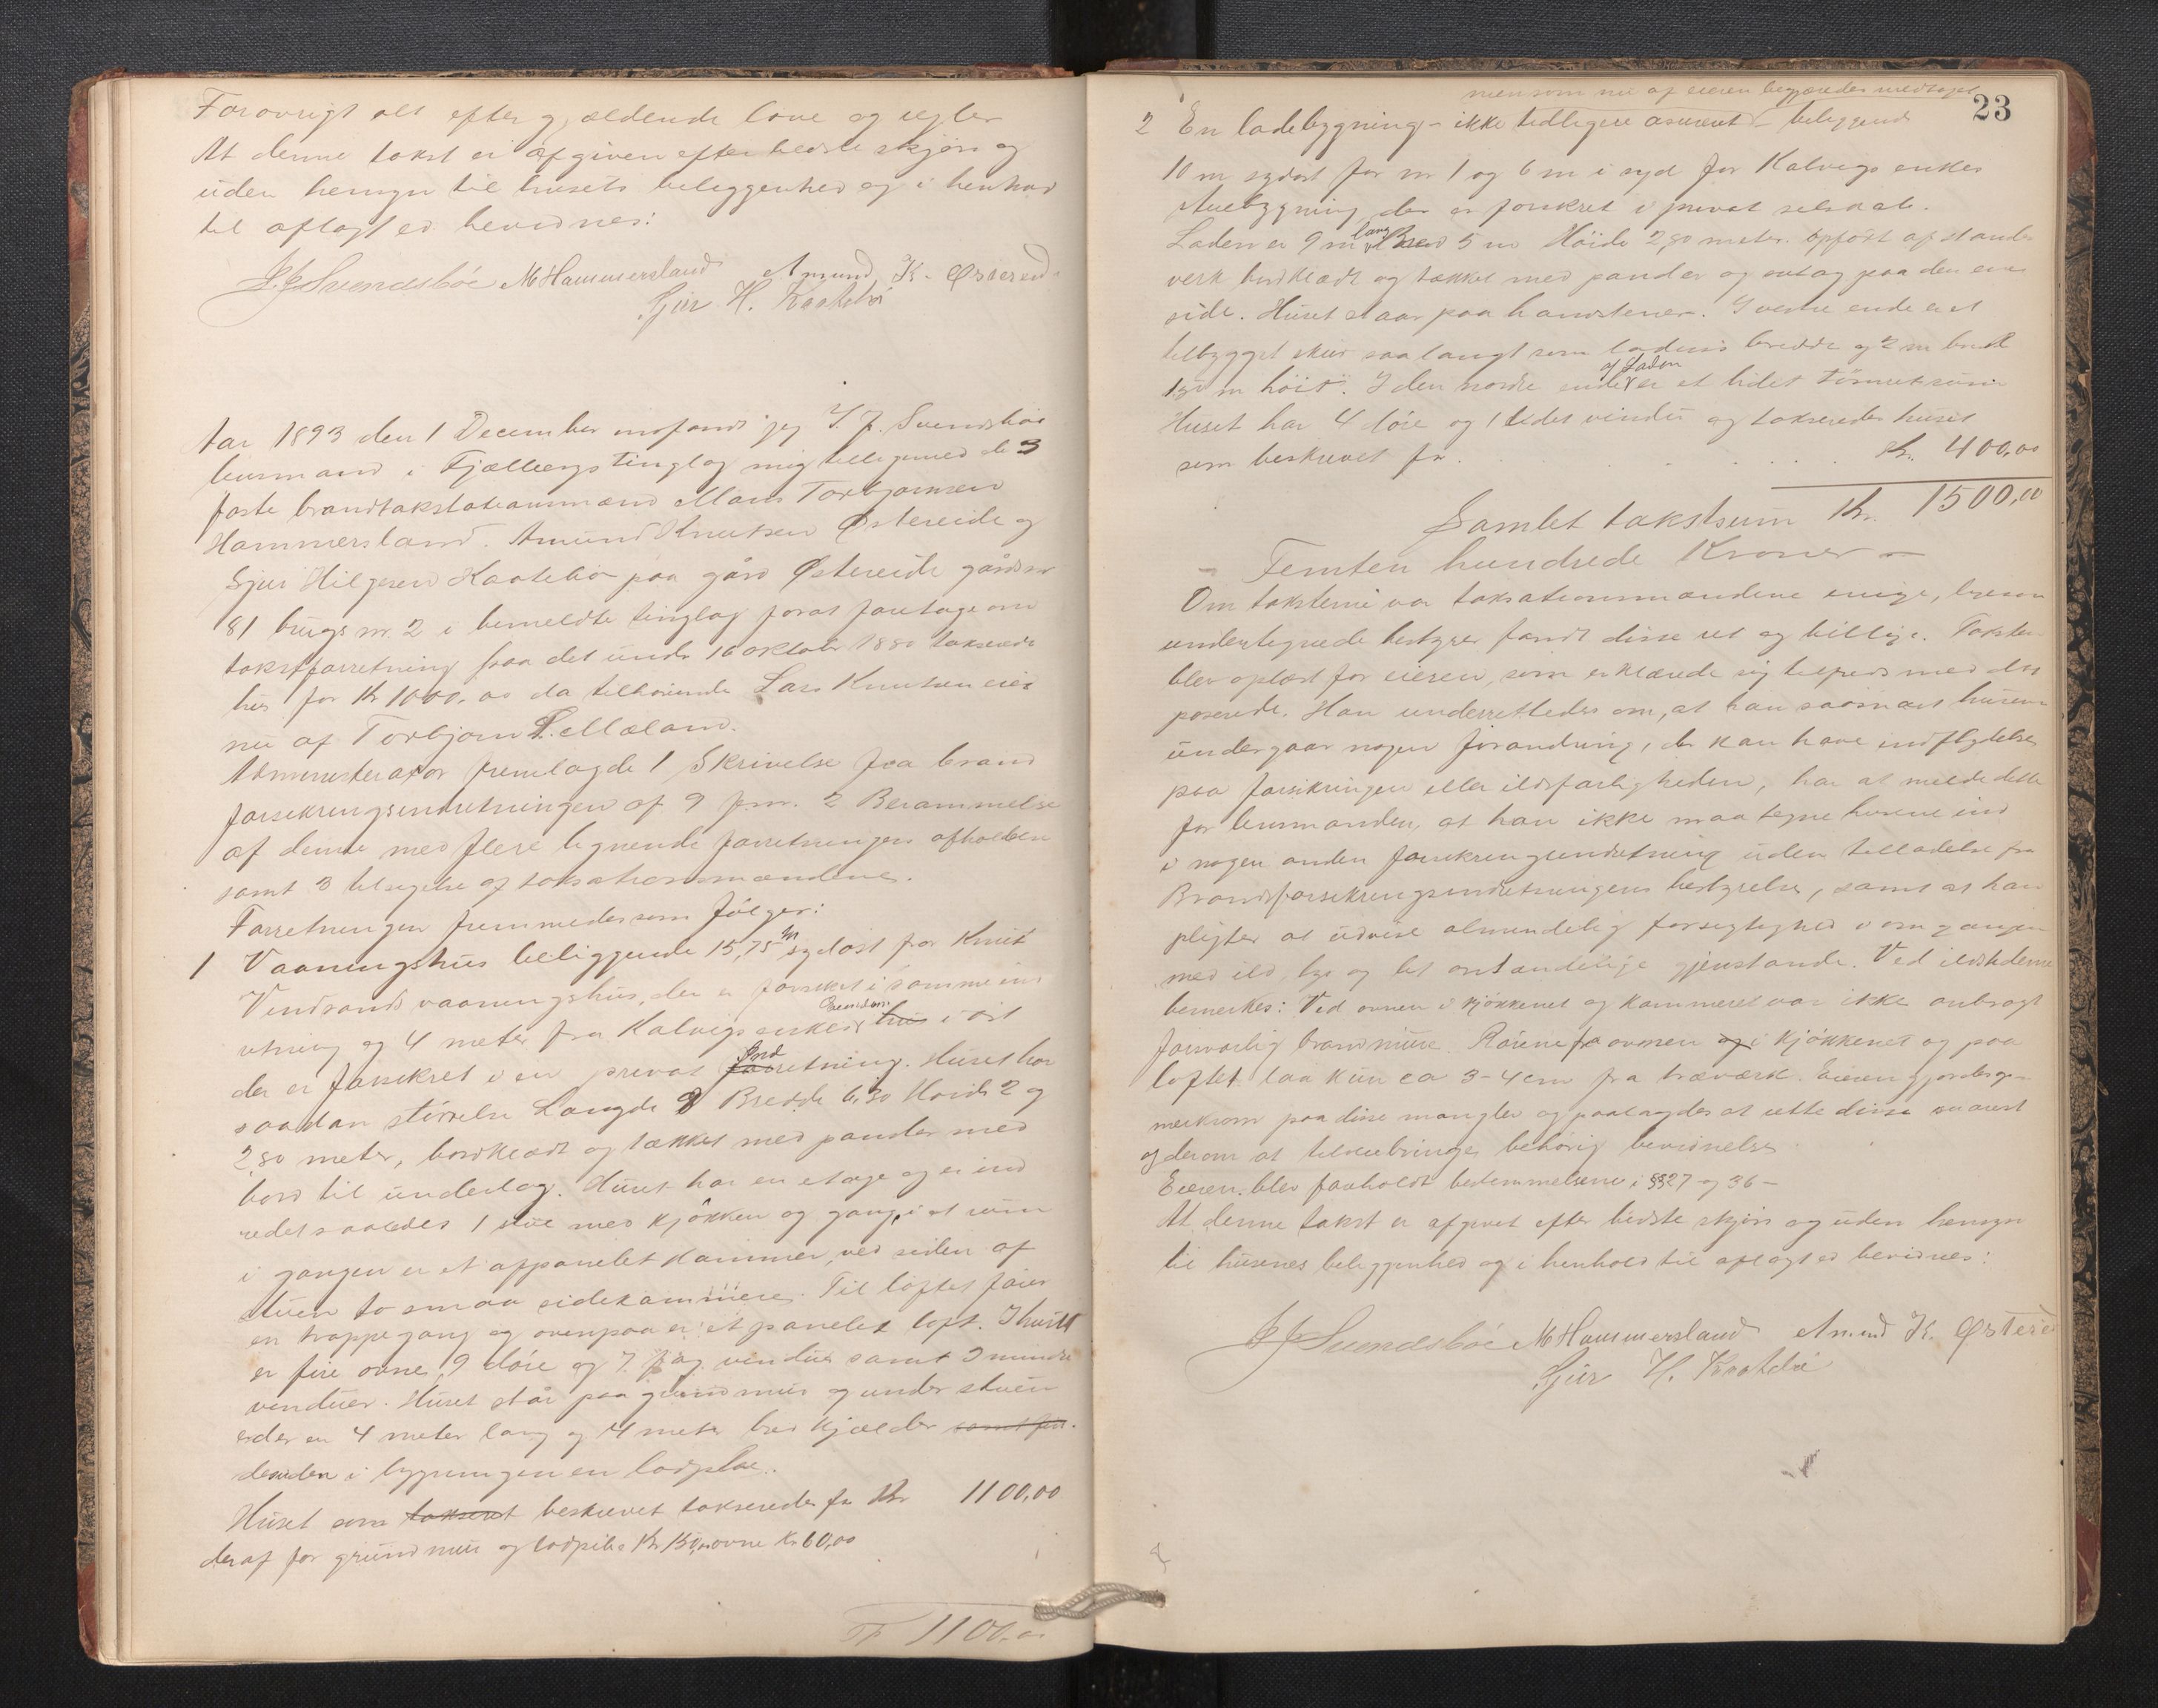 Forøvrigt alt efter gjældende love og regler
At denne takst er afgiven efter bedste skjøn og
uden hensyn til husets beliggenhed og i henhold
til aflagt ed bevidnes:
J.J. Svendsböe M Hammersland Amund K. Østereid
Sjur H. Kaatebö
Aar 1893 den 1 December indfandt jeg J. J. Svendsböe
lensmand i Fjælbergs tinglag mig tilligemed de 3
faste brandtakstationsmænd Mons Torbjørnsen
Hammersland. Amund Knutsen Østereide og
Sjur Hilgesen Kaatebø paa gård Østereide gårdsnr
81 brugs nr. 2 i bemeldte tinglag forat foretage om
takstforretning paa det under 16 oktober 1880 takserede
hus for Kr 1000.00 da tilhørende Lars Knutsen eies
nu af Torbjørn L. Mæland.
Administrator fremlagde 1 Skrivelse fra brand
forsikringsindretningen af 9 f.m. 2 Berammelse
af denne med flere lignende forretningers afholdelse
samt 3 tilsigelse af taksationsmændene.
Forretningen fremmedes som følger:
1 Vaaningshus beliggende 15,75 m sydøst for Knut
Vindsands vaaningshus, der er forsikret i samme ind
retning og 4 meter fra Kalvigs enkes hus i øst
der er forsikret i en privat Ind
forretning. Huset har
saadan størrelse Længde 9 Bredde 6,30 Høide 2 og
2,80 meter, bordklædt og tækket med pander med
bord til underlag. Huset har en etage og er ind
redet saaledes 1 stue med kjøkken og gang, i et rum
i gangen er et oppanelet kammer, ved siden af
stuen to smaa sidekammere. Til loftet fører
en trappegang og ovenpaa er et panelet loft. I huset
er fire ovne, 9 døre og 7 fag vinduer samt 3 mindre
vinduer. Huset står paa grundmur og under stuen
er der en 4 meter lang og 4 meter bred kjælder samt fin
desuden i bygningen en lodpibe.
Huset som taksert beskrevet takseredes for Kr 1100,00
deraf for grundmur og lodpibe Kr 150,00 ovne Kr 60,00
Tr 1100.00
23
men som nu af eieren begjæredes medtaget
2 En ladebygning – ikke tidligere assureret – beliggende
10 m sydøst for nr 1 og 6 m i syd for Kalvigs enkes
Stuebygning, der er forsikret i privat selskab.
Laden er 9 m lang Bred 5 m Høide 2,80 meter. opført af stander
verk bordklædt og tækket med pander og outag paa den ene
side. Huset staar paa handstener. I vestre ende er et
tilbygget skur saa langt som ladens bredde og 2 m bred
1,50 m høit. I den nordre ende af Laden er et lidet tømret rum
Huset har 4 døre og 1 lidet vindu og takseredes huset
som beskrevet for . . . . . . Kr. 400,00
Samlet takstsum Kr. 1500,00
– Femten hundrede Kroner –
Om taksterne var taksationsmændene enige, ligesom
undertegnede bestyrer fandt disse ret og billige. Taksten
blev oplæst for eieren, som erklærede sig tilfreds med det
passerede. Han underrettedes om, at han saasnart husene
undergaar nogen forandring, der kan have indflydelse
paa forsikringen eller ildsfarligheden, har at melde dette
for lensmanden, at han ikke maa tegne husene ind
i nogen anden forsikringsindretning uden tilladelse fra
Brandforsikringsindretningens bestyrelse, samt at han
pligter at udvise almindelig forsigtighed i omgangen
med ild, lys og let antændelige gjenstande. Ved ildstederne
bemerkes: Ved ovnen i kjøkkenet og kammeret var ikke anbragt
forsvarlig brandmure. Rørene fra ovnen og i kjøkkenet og paa
loftet laa kun ca 3-4 cm fra træværk. Eieren gjordes op-
merksom paa disse mangler og paalagdes at rette disse snarest
og derom at tilveiebringe behørig bevidnelse
Eieren blev foreholdt bestemmelserne i §§ 27 og 36 –
At denne takst er afgivet efter bedste skjøn og uden hensyn
til husenes beliggenhed og i henhold til aflagt ed bevidnes:
J J Svendsböe M Hammersland Amund K. Østereid
Sjur H. Kaatebö